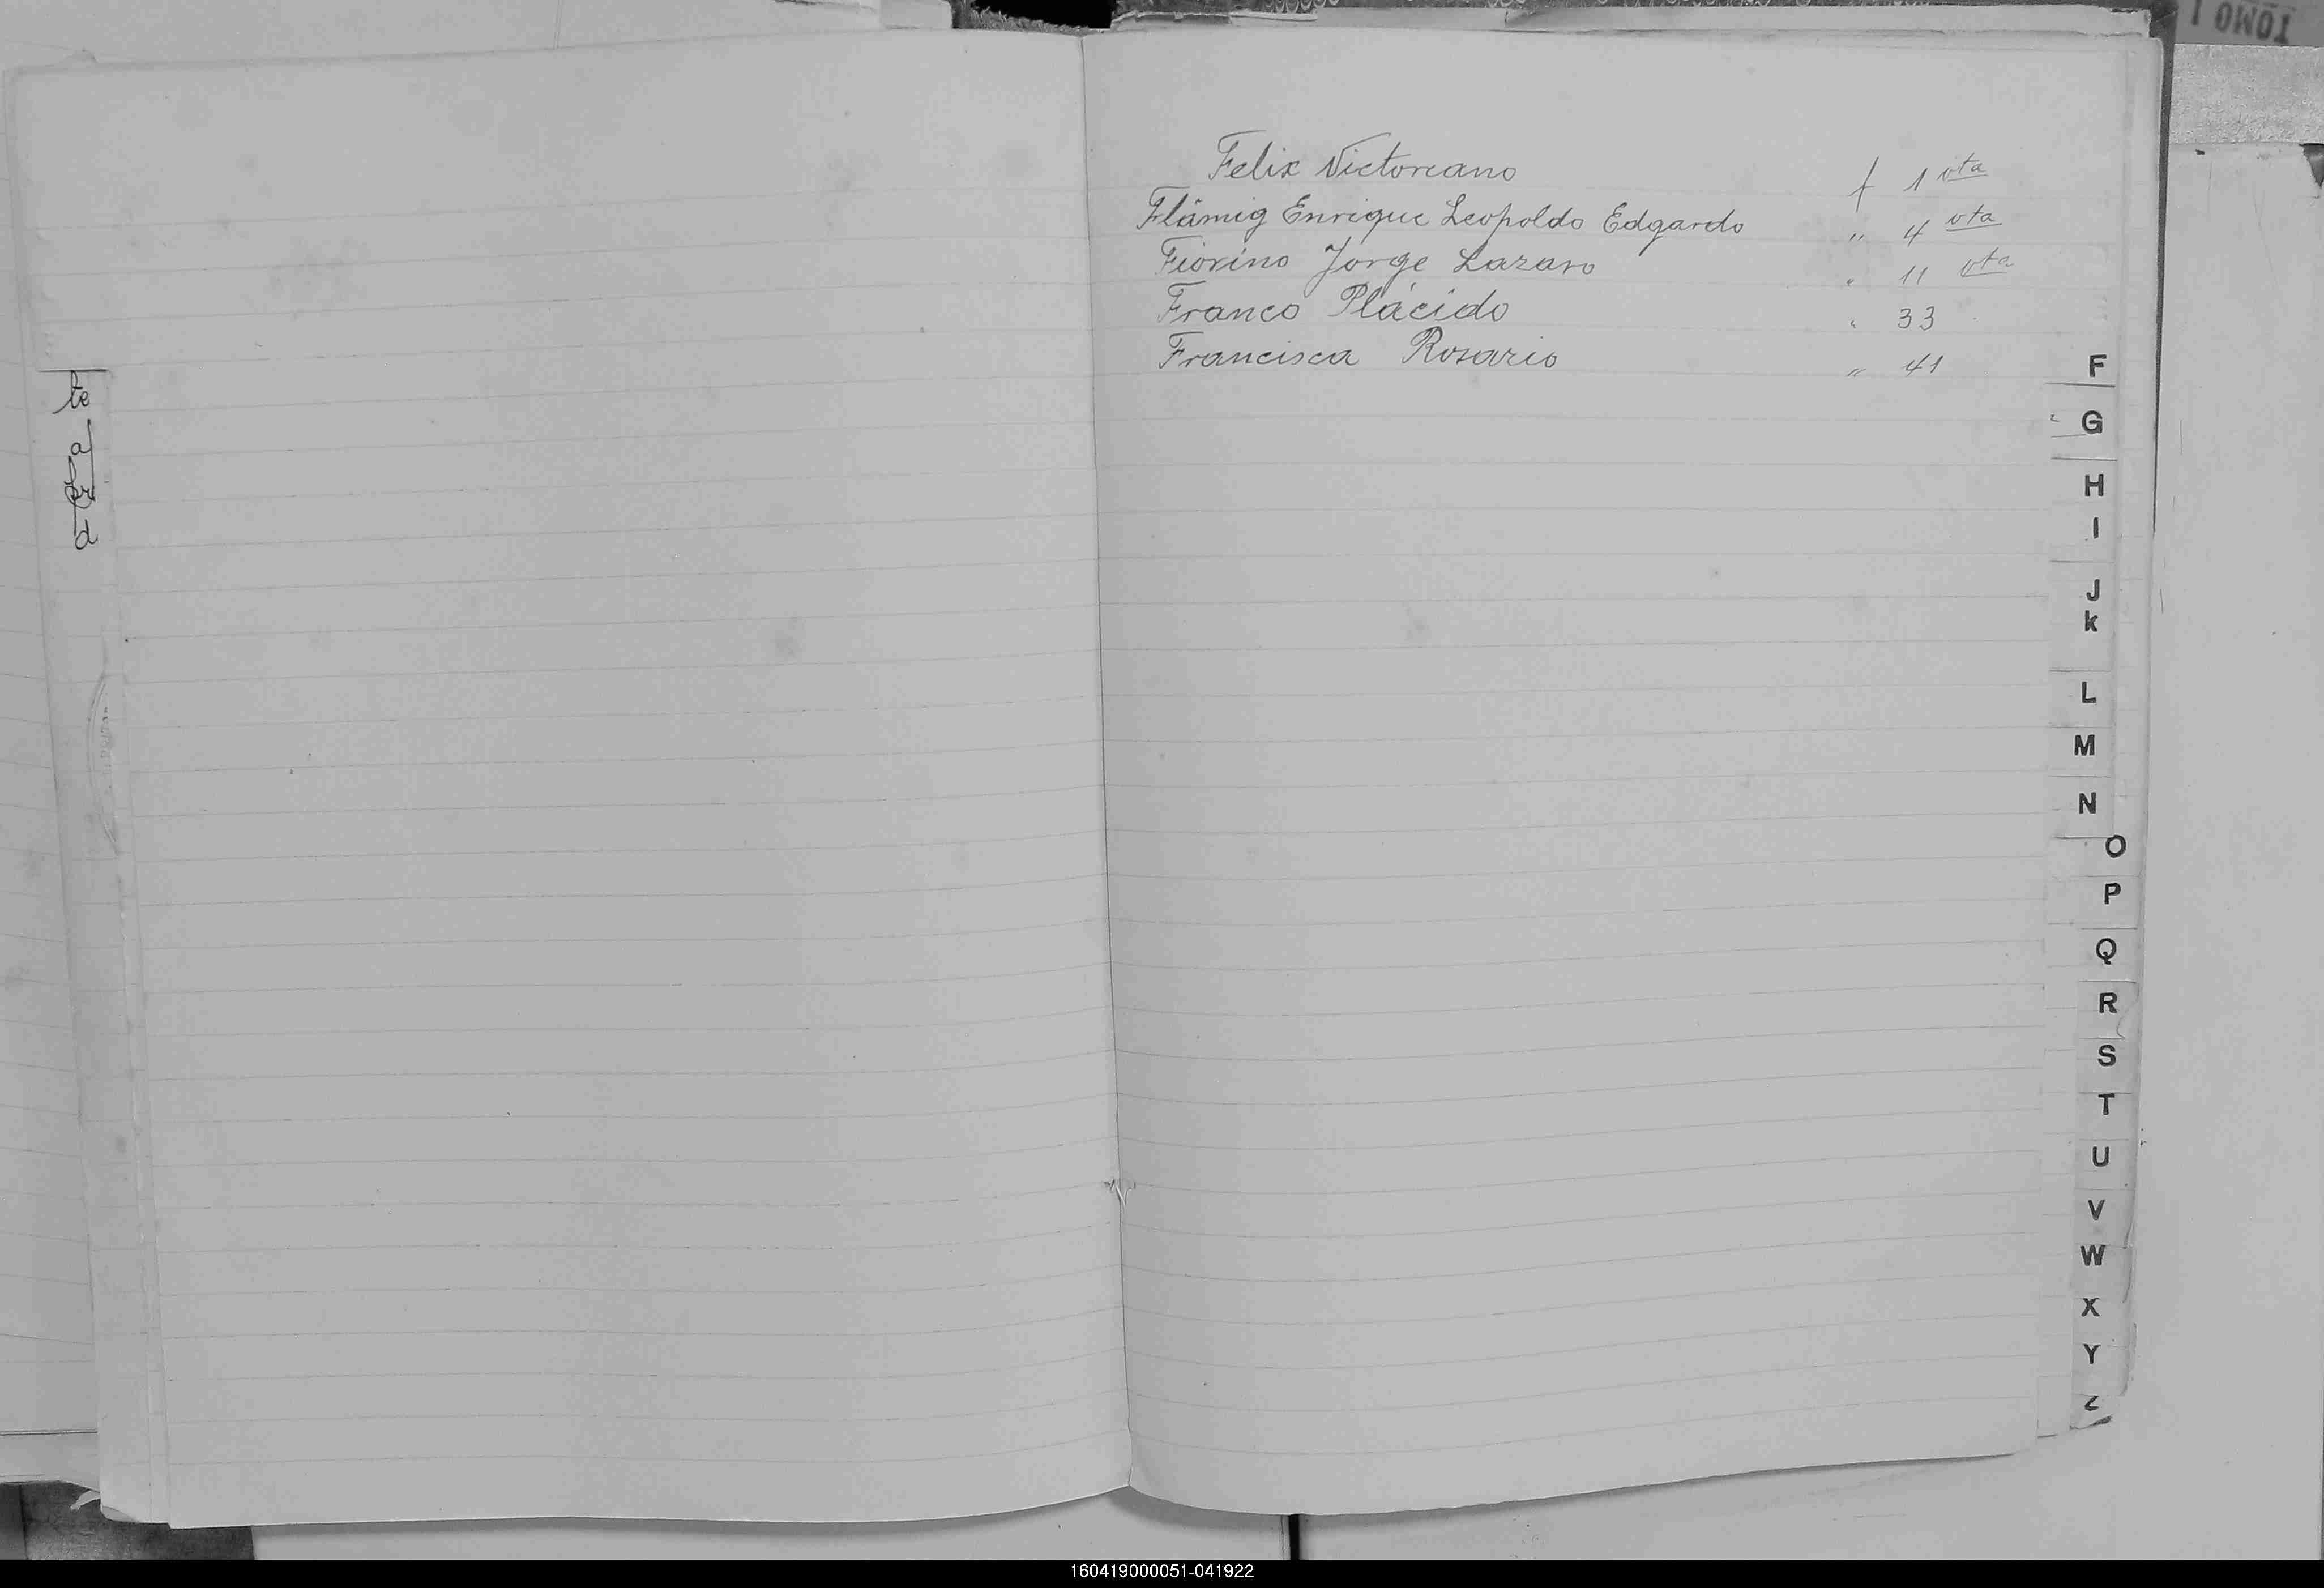 TOMO I
Felix Victoreano f 1 vta
Flämig Enrique Leopoldo Edgardo " 4 vta
Fiorino Jorge Lazaro " 11 vta
Franco Plácido " 33
Francisca Rosario " 41
te
a
d
F
G
H
I
J
k
L
M
N
O
P
Q
R
S
T
U
V
W
X
Y
Z
160419000051-041922